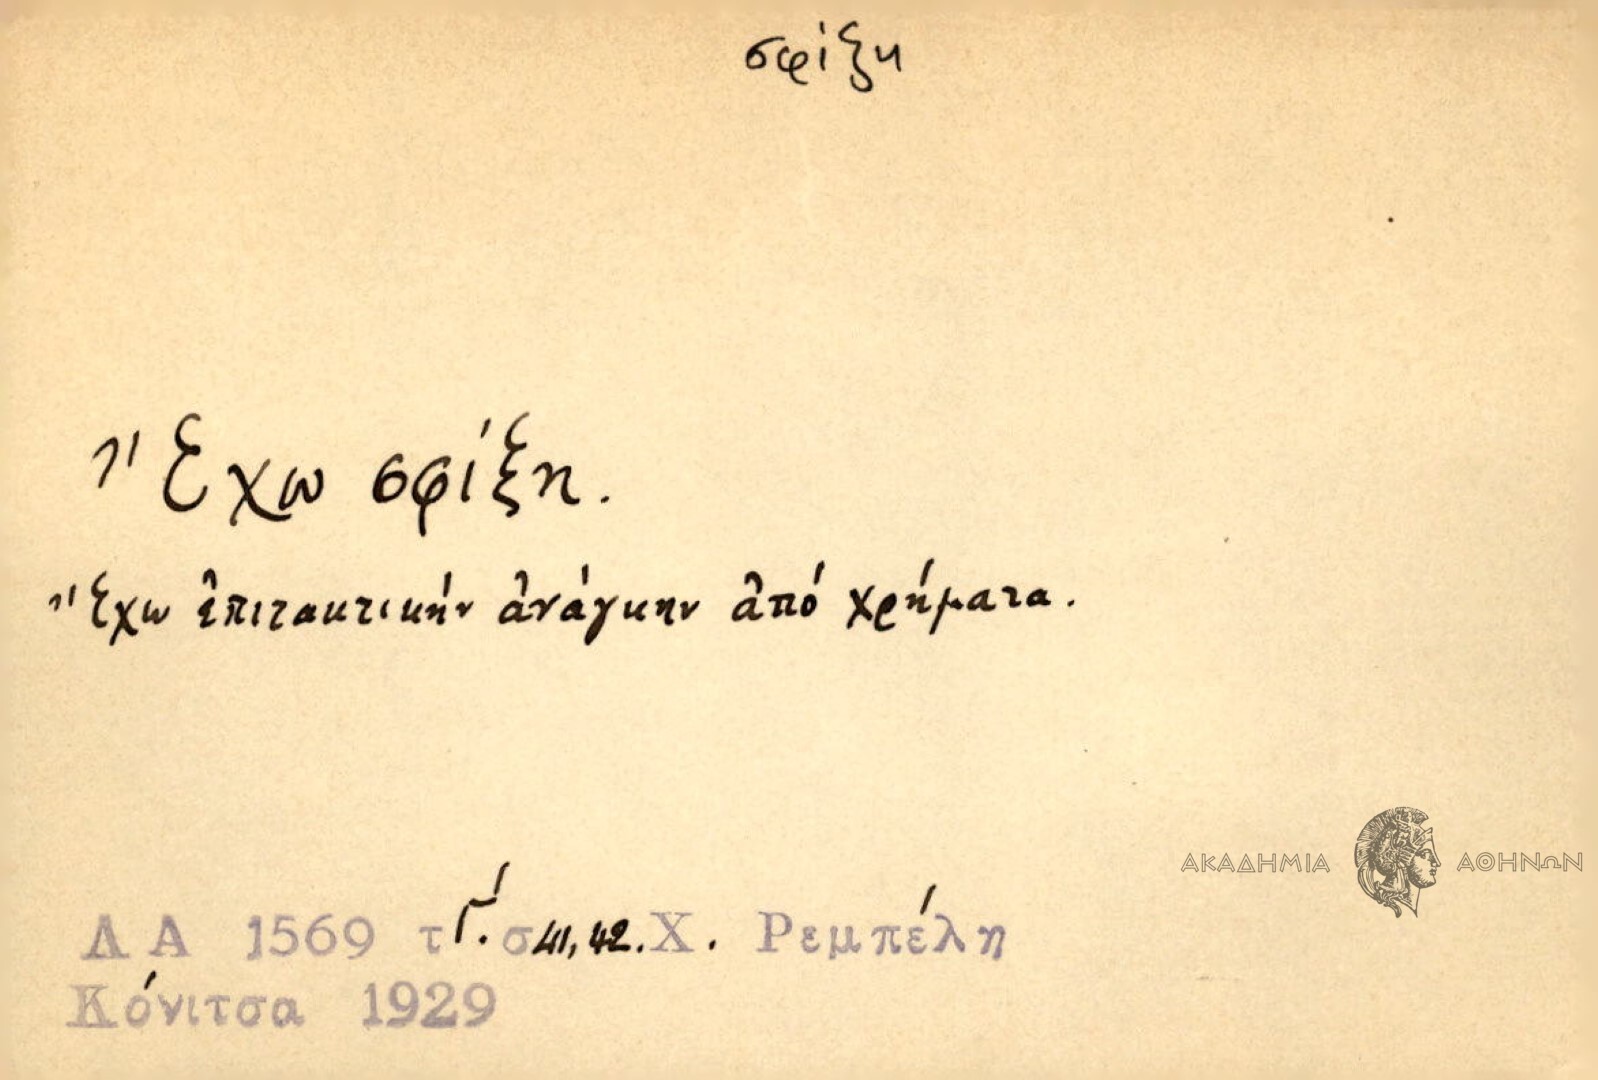 σφίξη
Ἔχω σφίξη.
Ἔχω ἐπιτακτικήν ἀνάγκην ἀπό χρήματα.
ΑΚΑΔΗΜΙΑ ΑΘΗΝΩΝ
ΛΑ 1569 τΓ́. σ41, 42. Χ. Ρεμπέλη
Κόνιτσα 1929